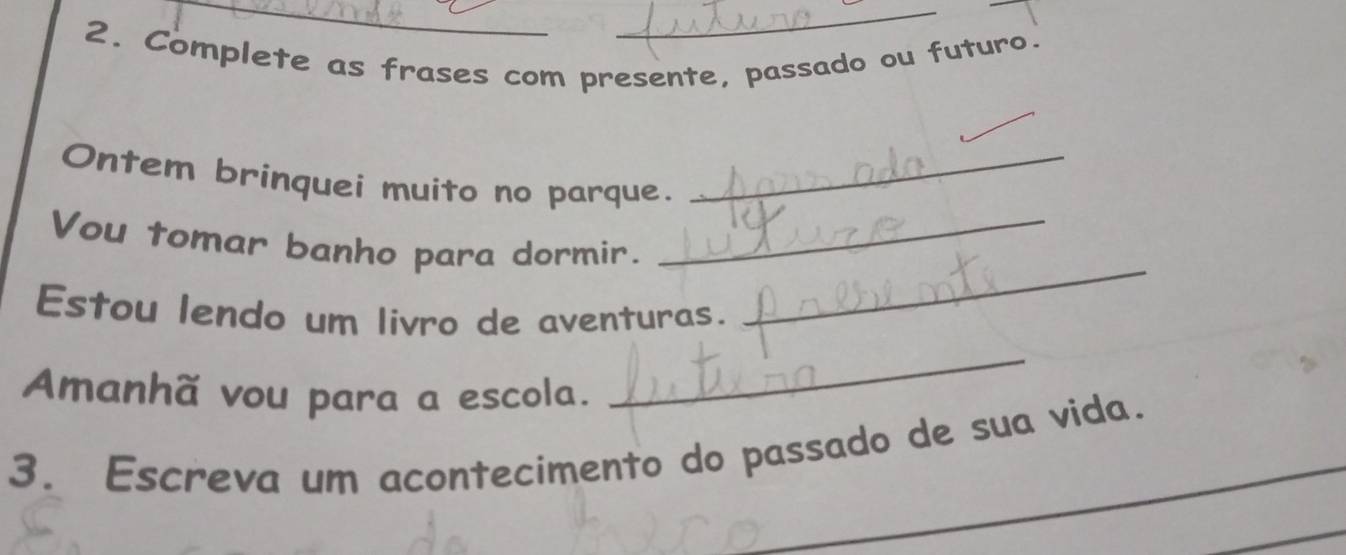 futuro
2. Complete as frases com presente, passado ou futuro.
Ontem brinquei muito no parque. passado
Vou tomar banho para dormir. futuro
Estou lendo um livro de aventuras. presente
Amanhã vou para a escola. futuro
3. Escreva um acontecimento do passado de sua vida.